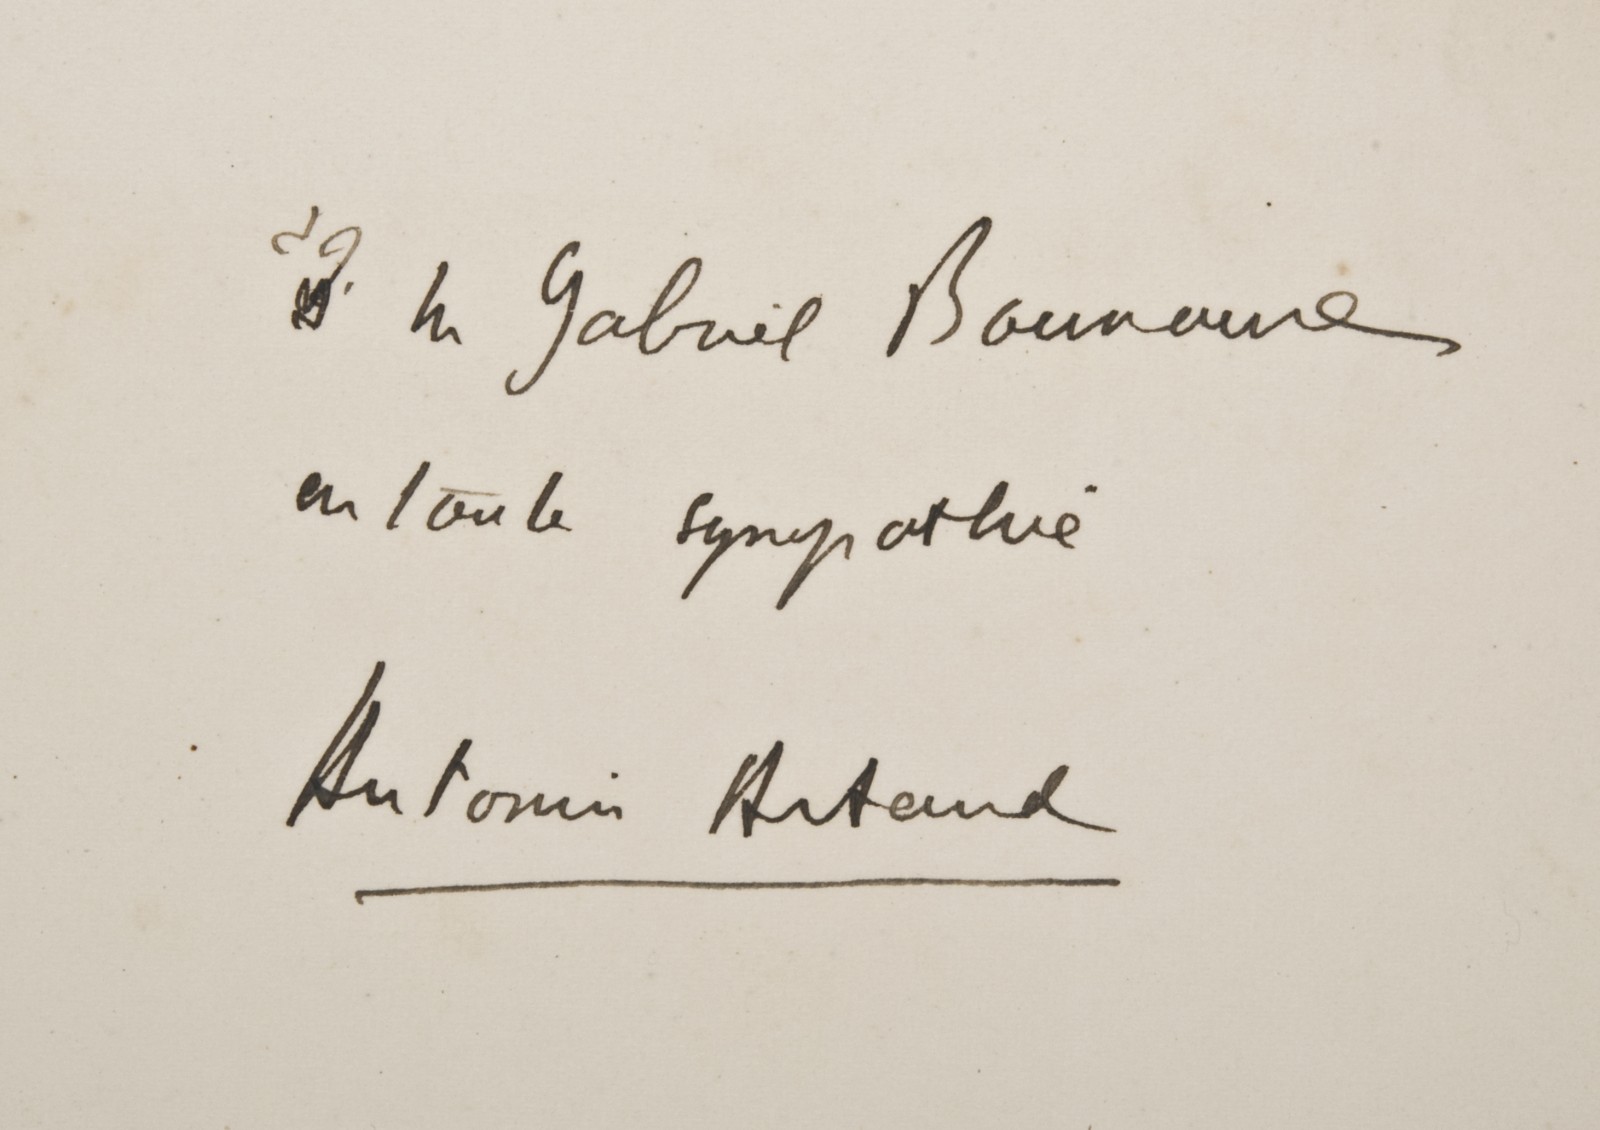 à M Gabriel Bounoure
en toute sympathie
Antonin Artaud